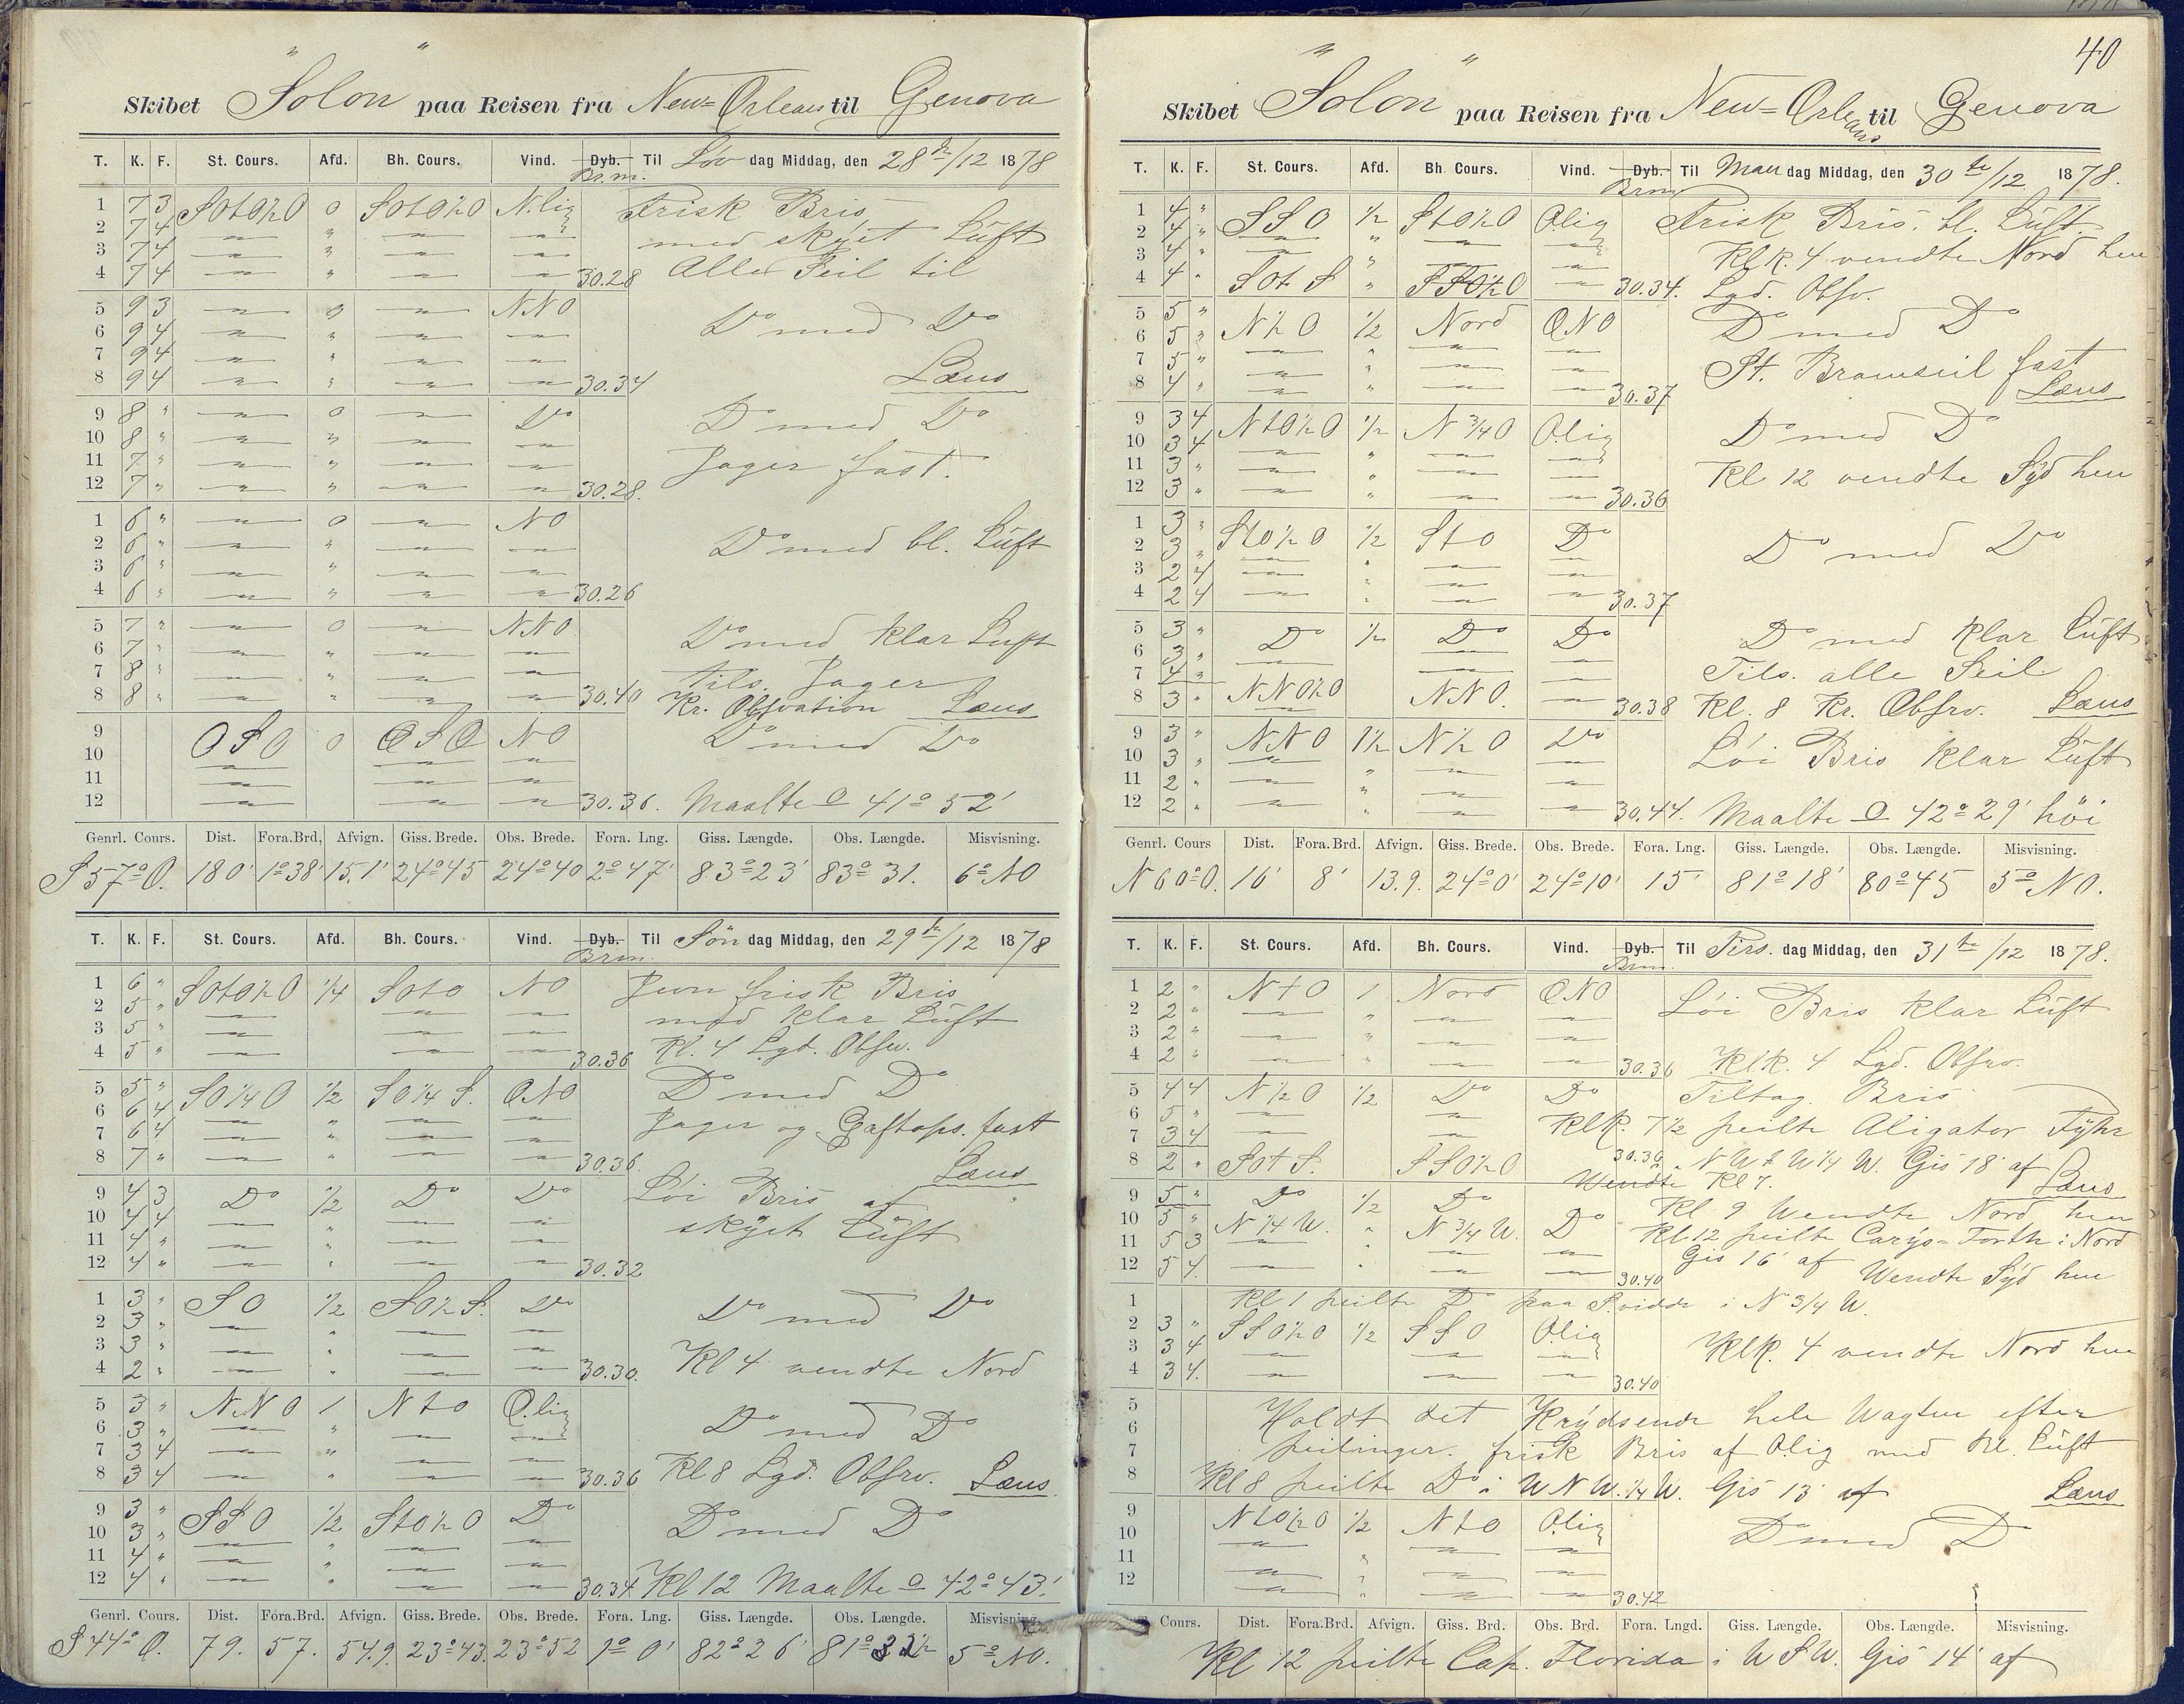 Skibet "Solon" paa Reisen fra New-Orleans til Genova
T. K. F. St. Cours. Afd. Bh. Cours. Vind. Dyb. Til Løv dag Middag, den 28de/12 1878
Br.m.
1 7 3 SOtO½O 0 SOtO½O N.lig Frisk Bris
2 7 4 — " — — med skyet Luft
3 7 4 — " — —
4 7 4 — " — — 30.28 Alle Seil til
5 9 3 — 0 — NNO
6 9 4 — " — — Do med Do
7 9 4 — " — —
8 9 4 — " — — 30.34 Læns
9 8 " — 0 — Do Do med Do
10 8 " — " — —
11 7 " — " — — Jager fast.
12 7 " — " — — 30.28.
1 6 " — 0 — NO
2 6 " — " — — Do med bl. Luft
3 6 " — " — —
4 6 " — " — — 30.26
5 7 " — 0 — NNO
6 7 " — " — — Do med klar Luft
7 8 " — " — — Tils. Jager
8 8 " — " — — 30.40 Kr. Obsvation Læns
9 OSO 0 OSO NO Do med Do
10 — — —
11 — — —
12 — — — 30.36. Maalte O 41° 52'
Genrl. Cours. Dist. Fora.Brd, Afvign. Giss. Brede. Obs. Brede. Fora. Lng. Giss. Længde. Obs. Længde. Misvisning.
S57°O. 180' 1°38' 15.1' 24°45 24°40 2°47' 83°23' 83° 31. 6° NO
T. K. F. St. Cours. Afd. Bh. Cours. Vind. Dyb. Til Søn dag Middag, den 29de/12 1878
Brm.
1 6 " SOtO½O ¼ SOtO NO Jevn frisk Bris
2 5 " — — — med klar Luft
3 5 " — — —
4 5 " — — — 30.36 Kl. 4 Lgd. Obsv.
5 5 " SO¼O ½ SO¼S. ONO Do med Do
6 6 4 — " — —
7 6 4 — " — — Jager og Gaftops. fast
8 7 " — " — — 30.36. Læns
9 4 3 Do ½ Do Do Løi Bris af
10 4 4 — " — — skyet Luft
11 4 " — " — —
12 4 " — " — — 30.32
1 3 " SO ½ SO½S. Do Do med Do
2 3 " — " — —
3 3 " — " — —
4 2 " — " — — 30.30. Kl 4 vendte Nord
5 3 " NNO 1 NtO O.lig
6 3 " — " — — Do med Do
7 3 4 — " — —
8 3 4 — " — — 30.36 Kl 8 Lgd. Obsrv. Læns.
9 3 " SSO ½ StO½O Do Do med Do
10 3 " — " — —
11 4 " — " — —
12 4 " — " — — 30.34 Kl 12 Maalte O 42° 43'.
Genrl. Cours. Dist. Fora.Brd. Afvign. Giss. Brede. Obs. Brede. Fora. Lng. Giss. Længde. Obs. Længde. Misvisning.
S44°O. 79. 57. 54.9. 23°43. 23°52 1° 0' 82° 26' 5° NO.
40
Skibet "Solon" paa Reisen fra New-Orleans til Genova
T. K. F. St. Cours. Afd. Bh. Cours. Vind. Dyb. Til Man dag Middag, den 30te/12 1878.
Brm
1 4 " SSO ½ StO½O Olig Frisk Bris. bl. Luft.
2 4 " — " — —
3 4 " — " — — Klk. 4 vendte Nord hen
4 4 " SOtS " SSO½O — 30.34. Lgd. Obsv.
5 5 " N½O ½ Nord ONO Do med Do
6 5 " — " — —
7 5 " — " — — St. Bramseil fast
8 4 " — " — — 30.37 Læns
9 3 4 NtO½O ½ N¾O O.lig Do med Do
10 3 4 — " — —
11 3 " — " — — Kl 12 vendte Syd hen
12 3 " — " — — 30.36
1 3 " StO½O ½ StO Do
2 3 " — " — — Do med Do
3 2 4 — " — —
4 2 4 — " — — 30.37
5 3 " Do ½ Do Do Do med klar Luft
6 3 " — — —
7 4 " — — — Tils. alle Seil
8 3 " NNO½O NNO. — 30.38 Kl. 8 Kr. Obsrv. Læns
9 3 " NNO 1½ N½O Do Løi Bris klar Luft
10 3 " — " — —
11 2 " — " — —
12 2 " — " — — 30.44. Maalte O 42° 29' høi
Genrl. Cours Dist. Fora.Brd. Afvign. Giss. Brede. Obs. Brede. Fora. Lng. Giss. Længde. Obs. Længde. Misvisning.
N60°O. 16' 8' 13.9. 24°0' 24°10' 15' 81°18' 80°45 5° NO.
T. K. F. St. Cours. Afd. Bh. Cours. Vind. Dyb. Til Tirs. dag Middag, den 31te/12 1878.
Brm.
1 2 " NtO 1 Nord ONO Løi Bris klar Luft
2 2 " — " — —
3 2 " — " — —
4 2 " — " — — 30.36 Klk. 4 Lgd. Obsrv.
5 4 4 N½O ½ Do Do Tiltag. Bris
6 5 " — — Klk. 7½ peilte Aligator Fyhr
7 3 4 — —
8 2 " SOtS. SSO½O 30.36 i NWtW¼W. Gis 18' af Læns
Wendte Kl 7.
9 5 " Do ½ Do Kl. 9 Wendte Nord hen
10 5 " N¼W. " N¾W. Do Kl 12 peilte Carys-Forth i Nord
11 5 3 — " — — Gis 16' af
12 5 4. — " — — 30.40 Wendte Syd hen
1 Kl 1 peilte Do paa S.vidde i N¾W.
2 3 " SSO½O ½ SSO O.lig
3 3 4 — — — Klk. 4 vendte Nord hen
4 3 4. — — — 30.40
5 Holdt det Krydsende hele Wagten efter
6 peilinger. frisk Bris af Olig med bl. Luft
7
8 Kl 8 peilte Do i WNW.¼W. Gis 13' af Læns
9 NtO½O ½ NtO O.lig
10 — — — Do med Do
11 — " — —
12 — " — — 30.42
Cours. Dist. Fora.Brd. Afvign. Giss. Brd. Obs. Brd. Fora. Lngd. Giss. Længde. Obs. Længde. Misvisning.
Kl 12 peilte Cap. Florida i WSW. Gis 14' af